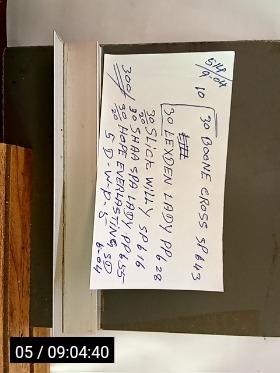 5148
9.04
10 30 BOONE CROSS SP 643
30 LEXDEN LADY PP 628
30 SLICK WILLY SP 616
20
30 SHAA SPA LADY PP 655
30 HOPE EVERLASTING SD
20
5 D.W-P-5 6.04
300
05 / 09:04:40